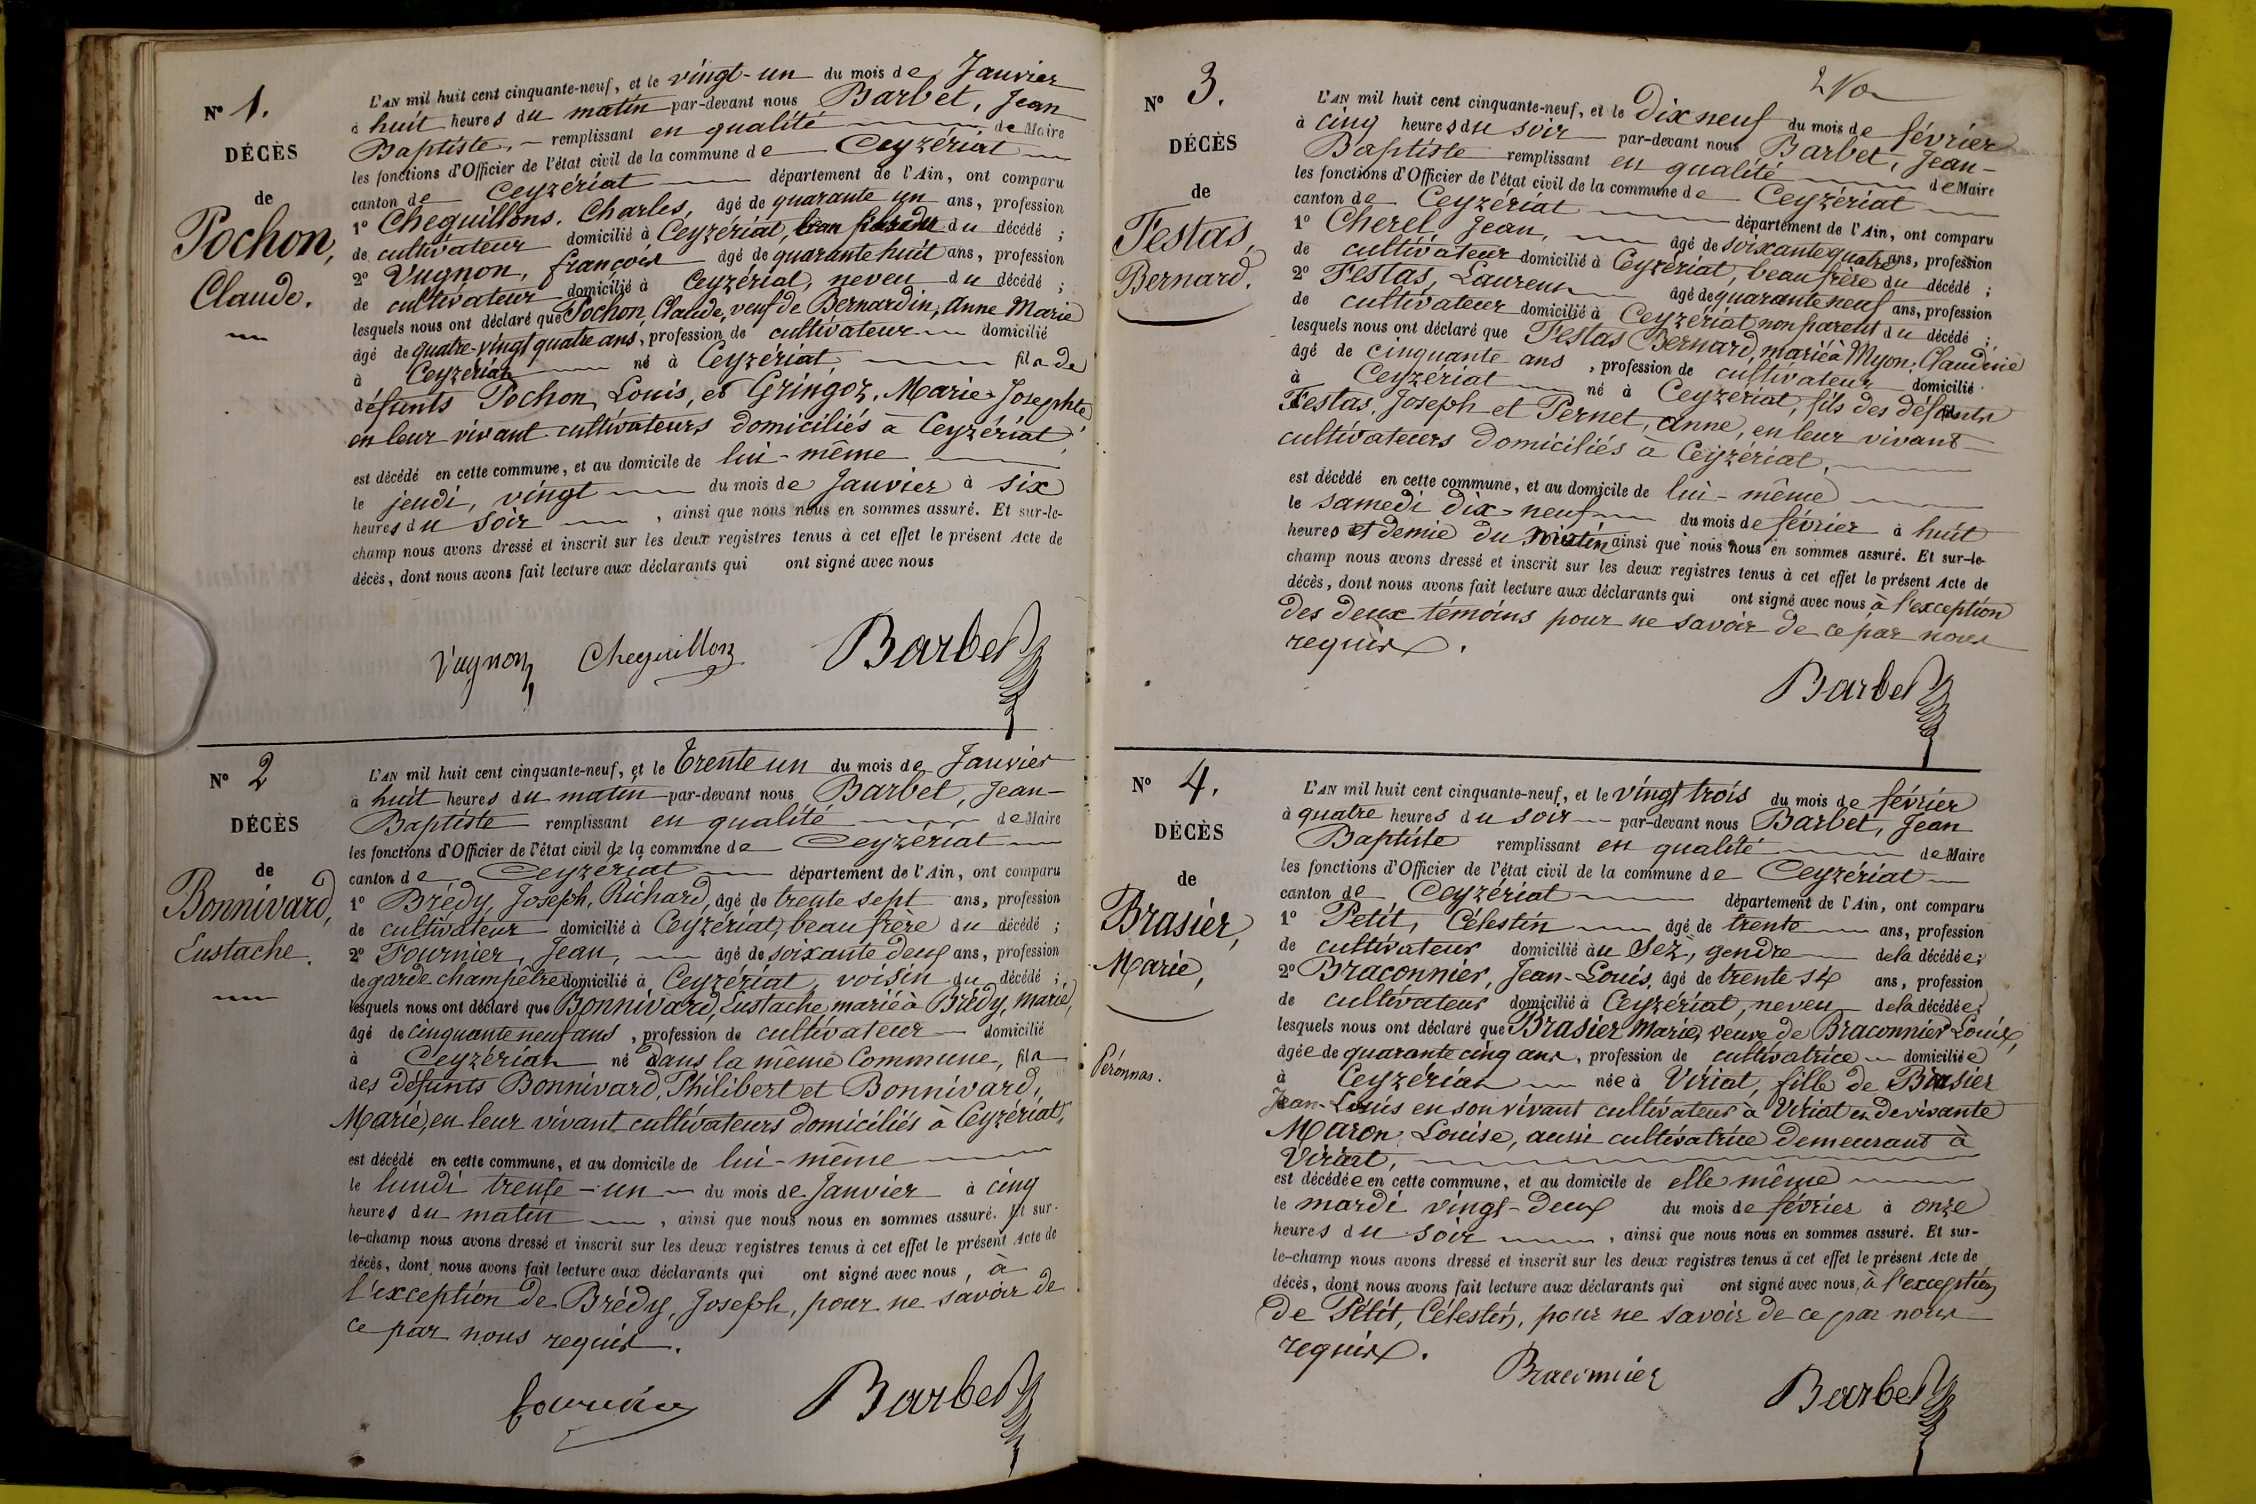 N° 1.
DÉCÈS
de
Pochon,
Claude.
L'AN mil huit cent cinquante-neuf, et le vingt-un du mois de Janvier
à huit heures du matin par-devant nous Barbet, Jean
Baptiste, remplissant en qualité de Maire
les fonctions d'Officier de l'état civil de la commune de Ceyzériat
canton de Ceyzériat département de l'Ain, ont comparu
1° Cheguillons. Charles, âgé de quarante un ans, profession
de cultivateur domicilié à Ceyzériat, du décédé ;
2° Vugnon, françois âgé de quarante huit ans, profession
de cultivateur domicilié à Ceyzériat, neveu du décédé ;
lesquels nous ont déclaré que Pochon, Claude, veuf de Bernardin, Anne Marie
âgé de quatre-vingt quatre ans, profession de cultivateur domicilié
à Ceyzériat né à Ceyzériat, fils de
défunts Pochon, Louis, et Gringoz, Marie-Josephte,
en leur vivant cultivateurs domiciliés à Ceyzériat,
est décédé en cette commune, et au domicile de lui-même
le jeudi, vingt du mois de Janvier à six
heures du soir, ainsi que nous nous en sommes assuré. Et sur-le-
champ nous avons dressé et inscrit sur les deux registres tenus à cet effet le présent Acte de
décès, dont nous avons fait lecture aux déclarants qui ont signé avec nous
Vugnon Cheguillon Barbet
N° 2
DÉCÈS
de
Bonnivard,
Eustache.
L'AN mil huit cent cinquante-neuf, et le trente un du mois de Janvier
à huit heures du matin par-devant nous Barbet, Jean-
Baptiste remplissant en qualité de Maire
les fonctions d'Officier de l'état civil de la commune de Ceyzériat
canton de Ceyzériat département de l'Ain, ont comparu
1° Brédy, Joseph, Richard, âgé de trente sept ans, profession
de cultivateur domicilié à Ceyzériat, beau frère du décédé ;
2° Fournier, Jean, âgé de soixante deux ans, profession
de garde champêtre domicilié à Ceyzériat, voisin du décédé ;
lesquels nous ont déclaré que Bonnivard, Eustache, marié à Brédy, Marie,
âgé de cinquante neuf ans, profession de cultivateur domicilié
à Ceyzériat né dans la même Commune, fils
des défunts Bonnivard, Philibert et Bonnivard,
Marie, en leur vivant cultivateurs domiciliés à Ceyzériat,
est décédé en cette commune, et au domicile de lui-même
le lundi trente-un du mois de Janvier à cinq
heures du matin, ainsi que nous nous en sommes assuré. Et sur-
le-champ nous avons dressé et inscrit sur les deux registres tenus à cet effet le présent Acte de
décès, dont nous avons fait lecture aux déclarants qui ont signé avec nous, à
l'exception de Brédy, Joseph, pour ne savoir de
ce par nous requis.
fournier Barbet
N° 3.
DÉCÈS
de
Festas,
Bernard.
L'AN mil huit cent cinquante-neuf, et le Dix neuf du mois de février
à cinq heures du soir par-devant nous Barbet, Jean-
Baptiste remplissant en qualité de Maire
les fonctions d'Officier de l'état civil de la commune de Ceyzériat
canton de Ceyzériat département de l'Ain, ont comparu
1° Cherel, Jean, âgé de soixante quatre ans, profession
de cultivateur domicilié à Ceyzériat, beau frère du décédé ;
2° Festas, Laurent âgé de quarante neuf ans, profession
de cultivateur domicilié à Ceyzériat, non parent du décédé ;
lesquels nous ont déclaré que Festas Bernard, marié à Myon, Claudine
âgé de cinquante ans, profession de cultivateur domicilié
à Ceyzériat né à Ceyzériat, fils des défunts
Festas, Joseph et Pernet, Anne, en leur vivant
cultivateurs domiciliés à Ceyzériat,
est décédé en cette commune, et au domicile de lui-même
le samedi dix-neuf du mois de février à huit
heures et demie du matin ainsi que nous nous en sommes assuré. Et sur-le-
champ nous avons dressé et inscrit sur les deux registres tenus à cet effet le présent Acte de
décès, dont nous avons fait lecture aux déclarants qui ont signé avec nous à l'exception
des deux témoins pour ne savoir de ce par nous
requis.
Barbet
N° 4.
DÉCÈS
de
Brasier,
Marie,
Péronnas.
L'AN mil huit cent cinquante-neuf, et le vingt trois du mois de février
à quatre heures du soir par-devant nous Barbet, Jean
Baptiste remplissant en qualité de Maire
les fonctions d'Officier de l'état civil de la commune de Ceyzériat
canton de Ceyzériat département de l'Ain, ont comparu
1° Petit, Célestin âgé de trente ans, profession
de cultivateur domicilié au Sez, gendre de la décédée ;
2° Braconnier, Jean-Louis, âgé de trente six ans, profession
de cultivateur domicilié à Ceyzériat, neveu de la décédée ;
lesquels nous ont déclaré que Brasier Marie, veuve de Braconnier Louis,
âgée de quarante cinq ans, profession de cultivatrice domiciliée
à Ceyzériat née à Viriat, fille de Brasier
Jean-Louis en son vivant cultivateur à Viriat et de vivante
Maron, Louise, aussi cultivatrice demeurant à
Viriat,
est décédée en cette commune, et au domicile de elle même
le mardi vingt-deux du mois de février à onze
heures du soir, ainsi que nous nous en sommes assuré. Et sur-
le-champ nous avons dressé et inscrit sur les deux registres tenus à cet effet le présent Acte de
décès, dont nous avons fait lecture aux déclarants qui ont signé avec nous, à l'exception
de Petit, Célestin, pour ne savoir de ce par nous
requis.
Braconnier Barbet